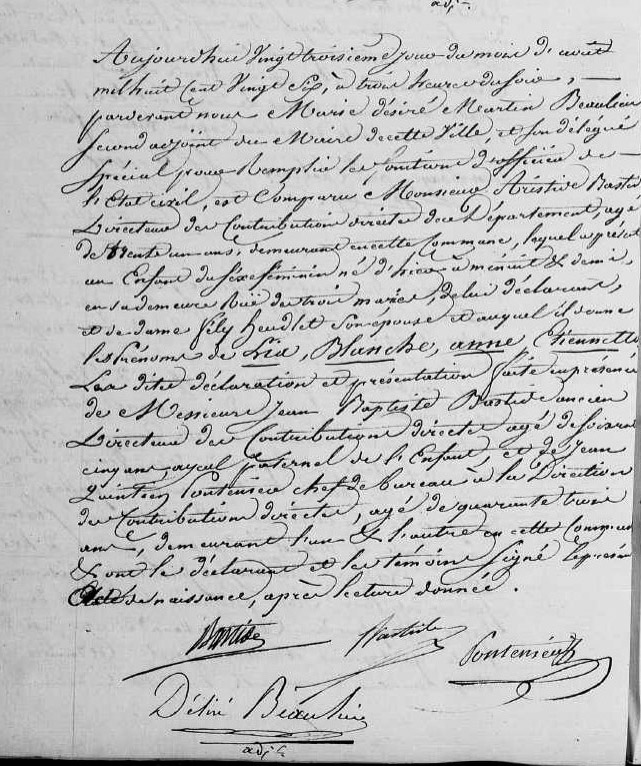 adj.
Aujourdhui Vingt troisième jour du mois d'août
mil huit cent Vingt Six, à trois heures du soir, —
pardevant nous Marie désiré Martin Beaulieu
second adjoint du Maire de cette Ville, et son délégué
Spécial pour Remplir les fonctions d'officier de —
l'Etat civil, est Comparu Monsieur Aristide Bastid
Directeur des Contributions directes de ce Département, agé
de trente un ans, demeurant en cette Commune, lequel a présenté
un Enfant du sexe féminin né d'hier à minuit & demi,
en sa demeure Rüe des trois maries, de lui déclarant,
et de dame fily heudlet son épouse et auquel il donne
les Prénoms de Lia, Blanche, anne Etiennette
Les dite déclaration et présentation faite en présence
de Messieurs Jean Baptiste Bastid ancien
Directeur des Contributions directes agé de soixante
cinq ans, ayeul paternel de l'Enfant, et de Jean
Quintien Pontenier chef de bureau à la Direction
des Contributions directes, agé de quarante trois
ans, demeurant l'un & l'autre en cette Commune
& ont le déclarant et les témoins Signé le présent
Acte de naissance, après lecture donnée.
Bastide Bastide
Désiré Beaulieu
adj.